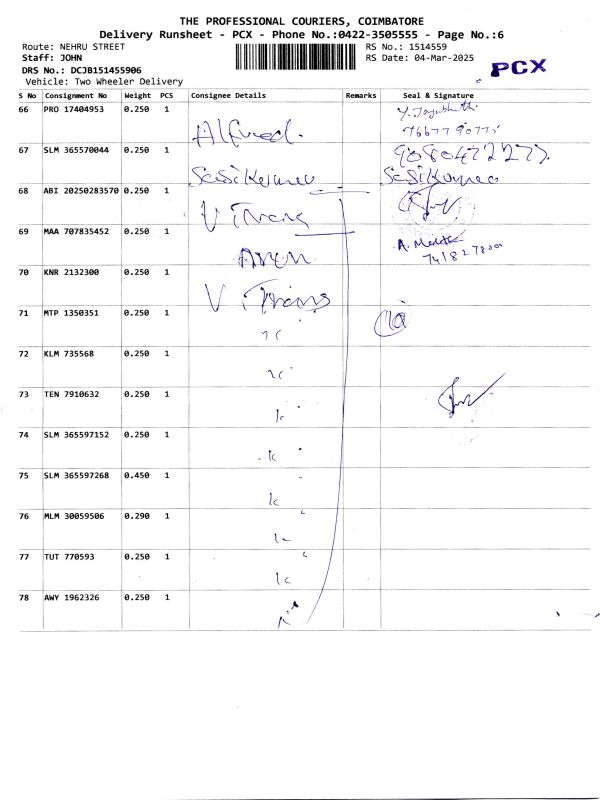 THE PROFESSIONAL COURIERS, COIMBATORE
Delivery Runsheet - PCX - Phone No.:0422-3505555 - Page No.:6
Route: NEHRU STREET RS No.: 1514559
Staff: JOHN RS Date: 04-Mar-2025
DRS No.: DCJB151455906 PCX
Vehicle: Two Wheeler Delivery
S No Consignment No Weight PCS Consignee Details Remarks Seal & Signature
66 PRO 17404953 0.250 1 Alfred.
67 SLM 365570044 0.250 1 Sasikumar Sasikumar
68 ABI 20250283570 0.250 1 V Trans
69 MAA 707835452 0.250 1 Aren A.
70 KNR 2132300 0.250 1 V Trans
71 MTP 1350351 0.250 1
72 KLM 735568 0.250 1
73 TEN 7910632 0.250 1
74 SLM 365597152 0.250 1
75 SLM 365597268 0.450 1
76 MLM 30059506 0.290 1
77 TUT 770593 0.250 1
78 AWY 1962326 0.250 1